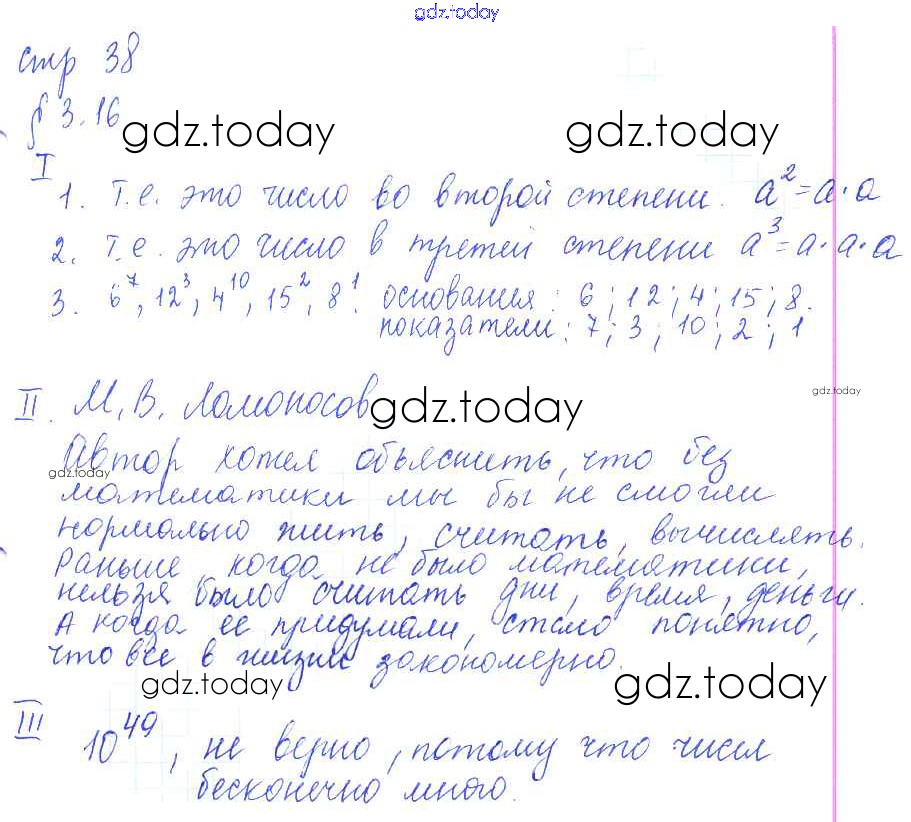 gdz.today
стр 38
§ 3.16
gdz.today gdz.today
I
1. Т.е. это число во второй степени. a² = a · a
2. Т.е. это число в третей степени a³ = a · a · a
3. 6⁷, 12³, 4¹⁰, 15², 8¹. основания: 6; 12; 4; 15; 8.
показатели: 7; 3; 10; 2; 1
II. М. В. Ломоносов gdz.today
gdz.today
Автор хотел объяснить, что без
gdz.today
математики мы бы не смогли
нормально жить, считать, вычислять.
Раньше когда не было математики,
нельзя было считать дни, время, деньги.
А когда ее придумали, стало понятно,
что все в жизни закономерно.
gdz.today gdz.today
III
10⁴⁹, не верно, потому что чисел
бесконечно много.